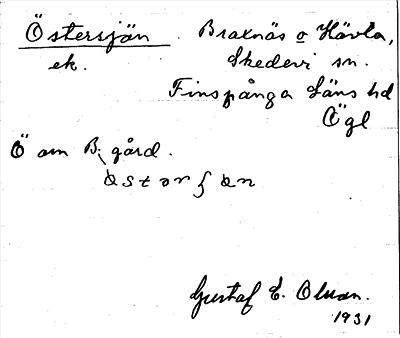 Östersjön Braxnäs o Hävla,
ek. Skedevi sn.
Finspånga Läns hd
Ögl
Ö om B. gård.
Gustaf E. Olsson.
1931